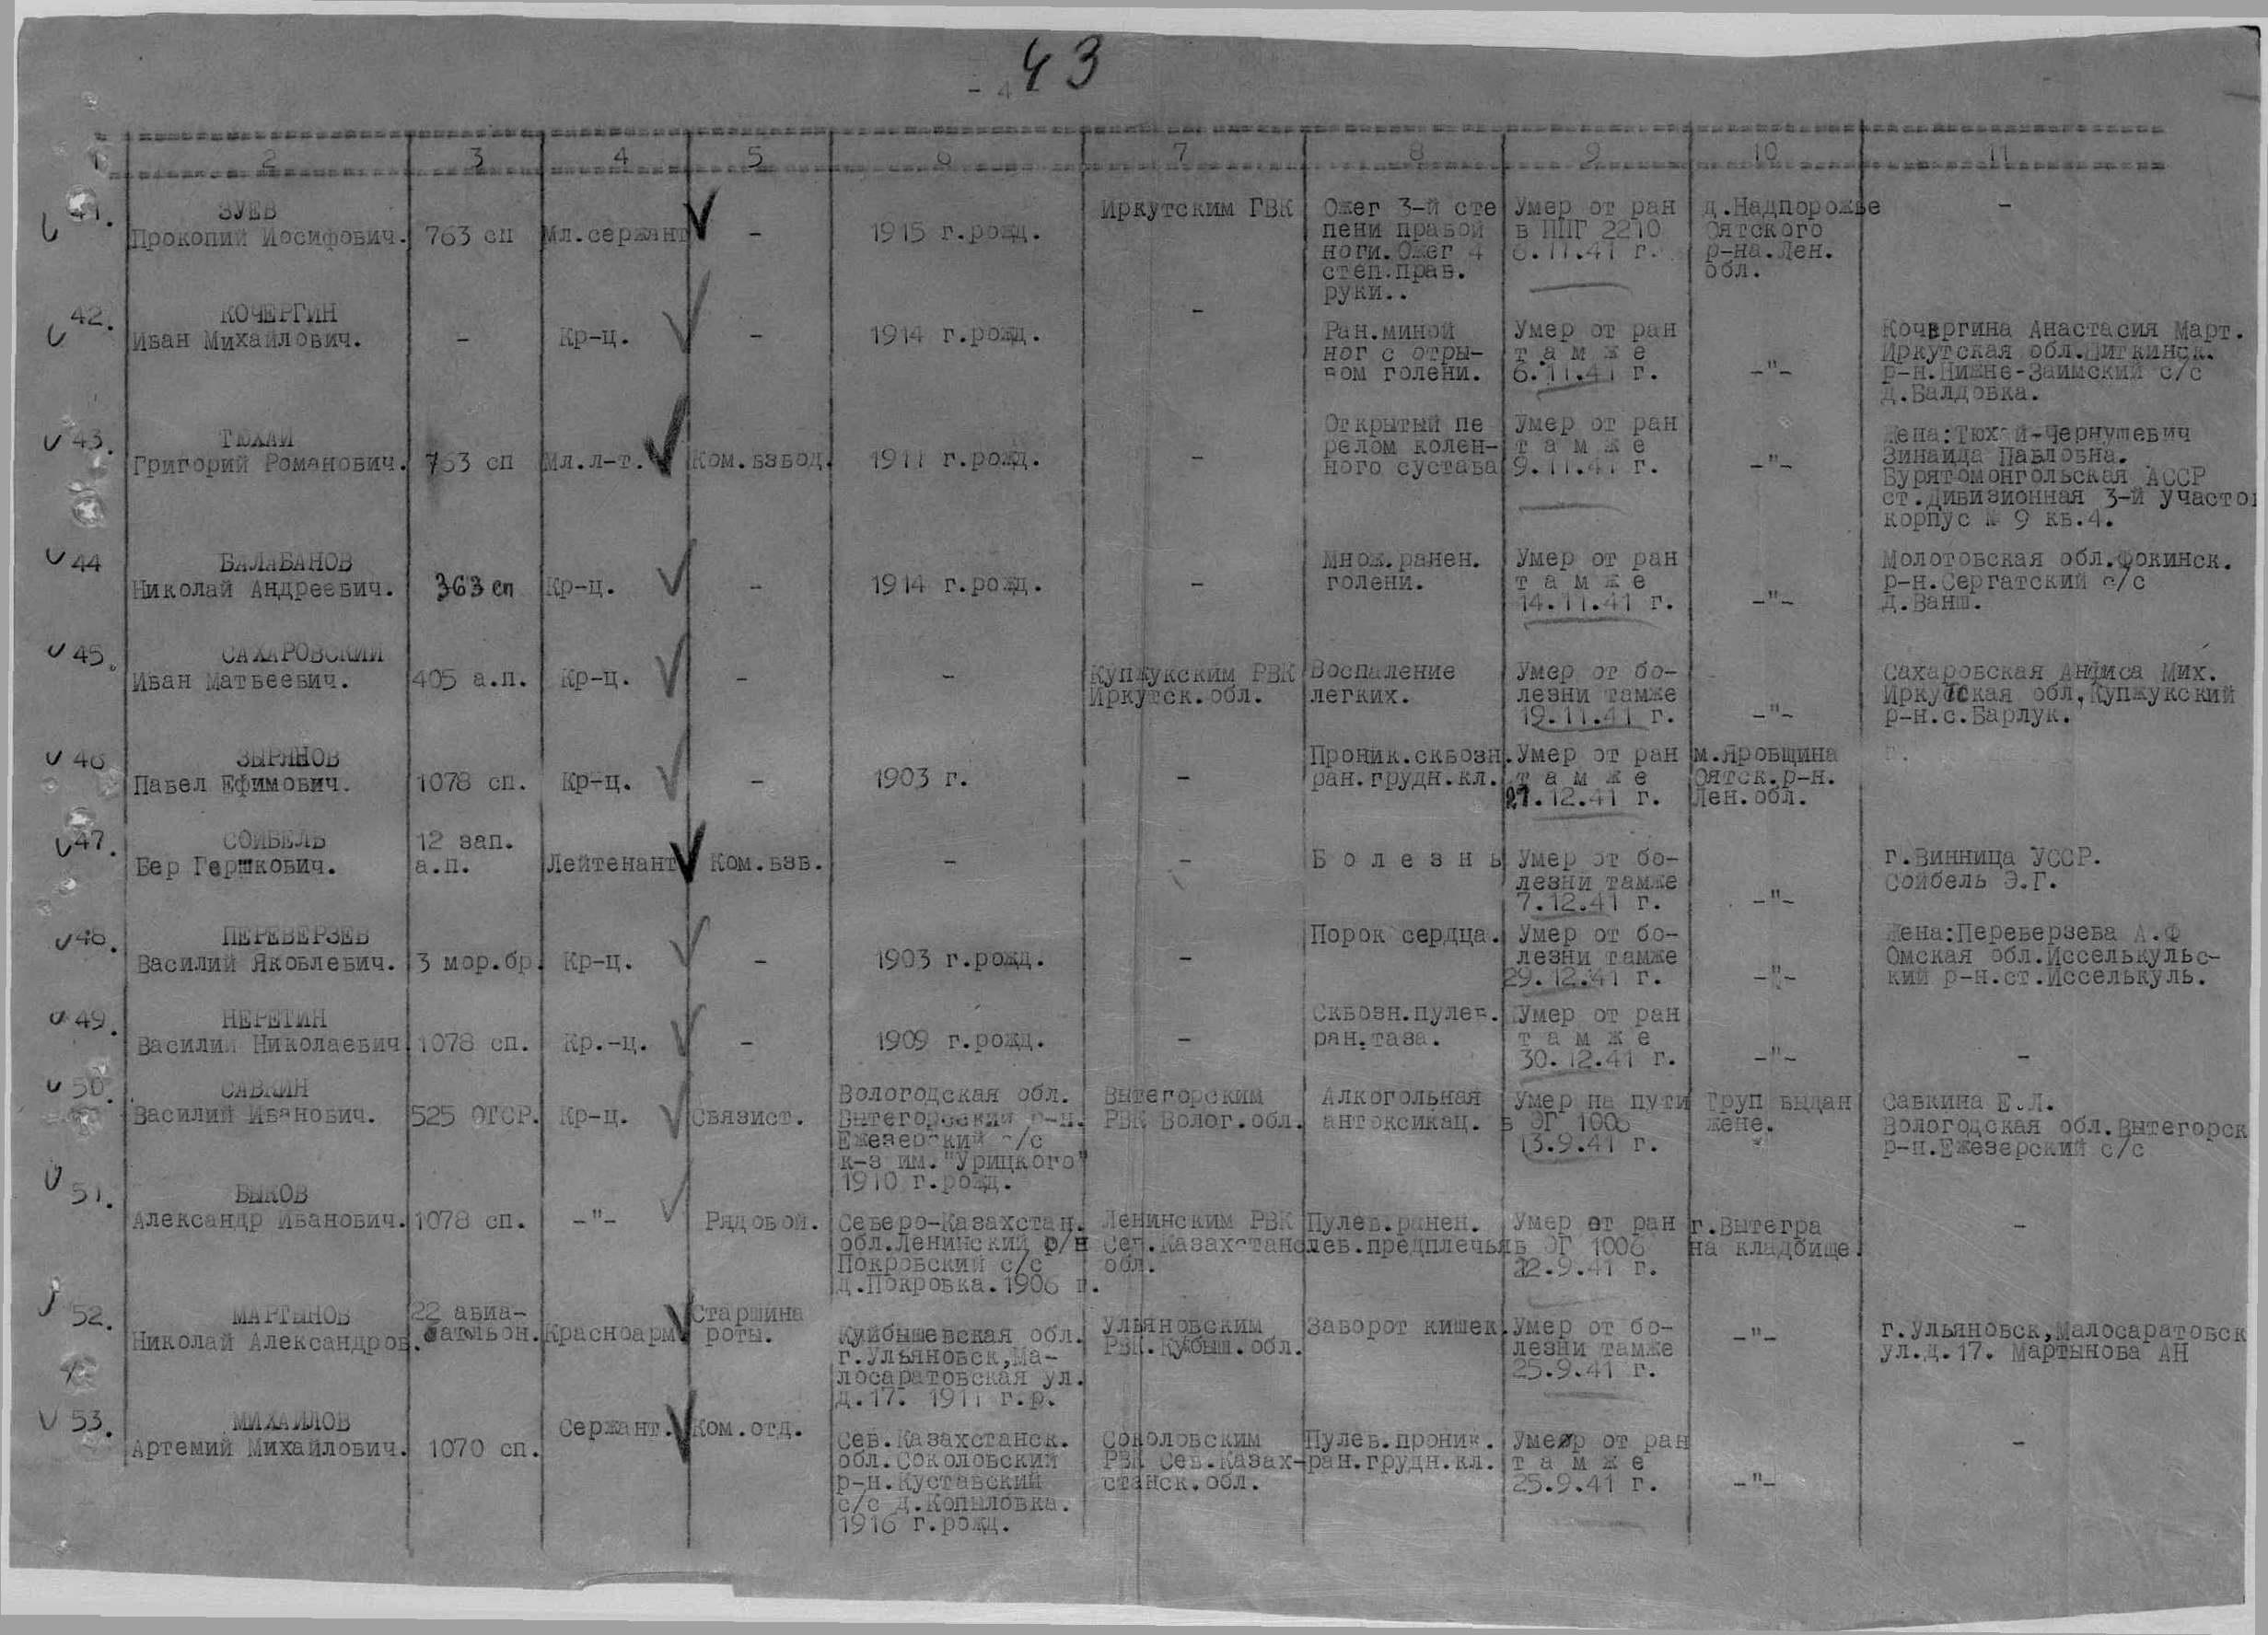 43
- 4 -
1 2 3 4 5 6 7 8 9 10 11
41. ЗУЕВ
Прокопий Иосифович. 763 сп Мл.сержант - 1915 г.рожд.
Иркутским ГВК
Ожег 3-й сте
пени правой
ноги.Ожег 4
степ.прав.
руки..
Умер от ран
в ППГ 2210
6.11.41 г.
д.Надпорожье
Оятского
р-на.Лен.
обл.
-
42. КОЧЕРГИН
Иван Михайлович. - Кр-ц. - 1914 г.рожд. -
Ран.миной
ног с отры-
вом голени.
Умер от ран
т а м ж е
6.11.41 г.
-"-
Кочергина Анастасия Март.
Иркутская обл.
р-н.Нижне-Заимский с/с
д.Балдовка.
43. ТЮХАЙ
Григорий Романович. 763 сп Мл.л-т. Ком.взвод. 1911 г.рожд. -
Открытый пе
релом колен-
ного сустава
Умер от ран
т а м ж е
9.11.41 г.
-"-
Жена:Тюхай-Чернушевич
Зинаида Павловна.
Бурятомонгольская АССР
ст.Дивизионная 3-й участо
корпус № 9 кв.4.
44 БАЛАБАНОВ
Николай Андреевич. 363 сп Кр-ц. - 1914 г.рожд. -
Множ.ранен.
голени.
Умер от ран
т а м ж е
14.11.41 г.
-"-
Молотовская обл.Фокинск.
р-н.Сергатский с/с
д.Ванш.
45. САХАРОВСКИЙ
Иван Матвеевич. 405 а.п. Кр-ц. - -
Купжукским РВК
Иркутск.обл.
Воспаление
легких.
Умер от бо-
лезни тамже
19.11.41 г.
-"-
Сахаровская Анфиса Мих.
Иркутская обл,Купжукский
р-н.с.Барлук.
46 ЗЫРЯНОВ
Павел Ефимович. 1078 сп. Кр-ц. - 1903 г. -
Проник.сквозн.
ран.грудн.кл.
Умер от ран
т а м ж е
21.12.41 г.
м.Яровщина
Оятск.р-н.
Лен.обл.
47. СОЙБЕЛЬ
Бер Гершкович.
12 зап.
а.п.
Лейтенант Ком.взв. - -
Б о л е з н ь
Умер от бо-
лезни тамже
7.12.41 г.
-"-
г.Винница УССР.
Сойбель Э.Г.
48. ПЕРЕВЕРЗЕВ
Василий Яковлевич. 3 мор.бр. Кр-ц. - 1903 г.рожд. -
Порок сердца.
Умер от бо-
лезни тамже
29.12.41 г.
-"-
Жена:Переверзева А.Ф
Омская обл.Исселькульс-
кий р-н.ст.Исселькуль.
49. НЕРЕТИН
Василий Николаевич 1078 сп. Кр.-ц. - 1909 г.рожд. -
Сквозн.пулев.
ран.таза.
Умер от ран
т а м ж е
30.12.41 г.
-"-
-
50. САВКИН
Василий Иванович. 525 ОТСР. Кр-ц. Связист.
Вологодская обл.
Вытегоровский р-н.
Ежезерский с/с
к-з им."Урицкого"
1910 г.рожд.
Вытегорским
РВК Волог.обл.
Алкогольная
антоксикац.
Умер на пути
в ЭГ 1006
13.9.41 г.
Труп выдан
жене.
Савкина Е.Л.
Вологодская обл.Вытегорск
р-н.Ежезерский с/с
51. БЫКОВ
Александр Иванович. 1078 сп. -"- Рядовой.
Северо-Казахстан.
обл.Ленинский р/н
Покровский с/с
д.Покровка.1906 г.
Ленинским РВК
Сев.Казахстанс
обл.
Пулев.ранен.
лев.предплечья
Умер от ран
в ЭГ 1006
22.9.41 г.
г.Вытегра
на кладбище.
-
52. МАРТЫНОВ
Николай Александров.
22 авиа-
батальон.
Красноарм
Старшина
роты.
Куйбышевская обл.
г.Ульяновск,Ма-
лосаратовская ул.
д.17. 1911 г.р.
Ульяновским
РВК.Куйбыш.обл.
Заворот кишек.
Умер от бо-
лезни тамже
25.9.41 г.
-"-
г.Ульяновск,Малосаратовск
ул.д.17. Мартынова АН
53. МИХАЙЛОВ
Артемий Михайлович. 1070 сп. Сержант. Ком.отд.
Сев.Казахстанск.
обл.Соколовский
р-н.Куставский
с/с д.Копыловка.
1916 г.рожд.
Соколовским
РВК Сев.Казах-
станск.обл.
Пулев.проник.
ран.грудн.кл.
Умер от ран
т а м ж е
25.9.41 г.
-"-
-